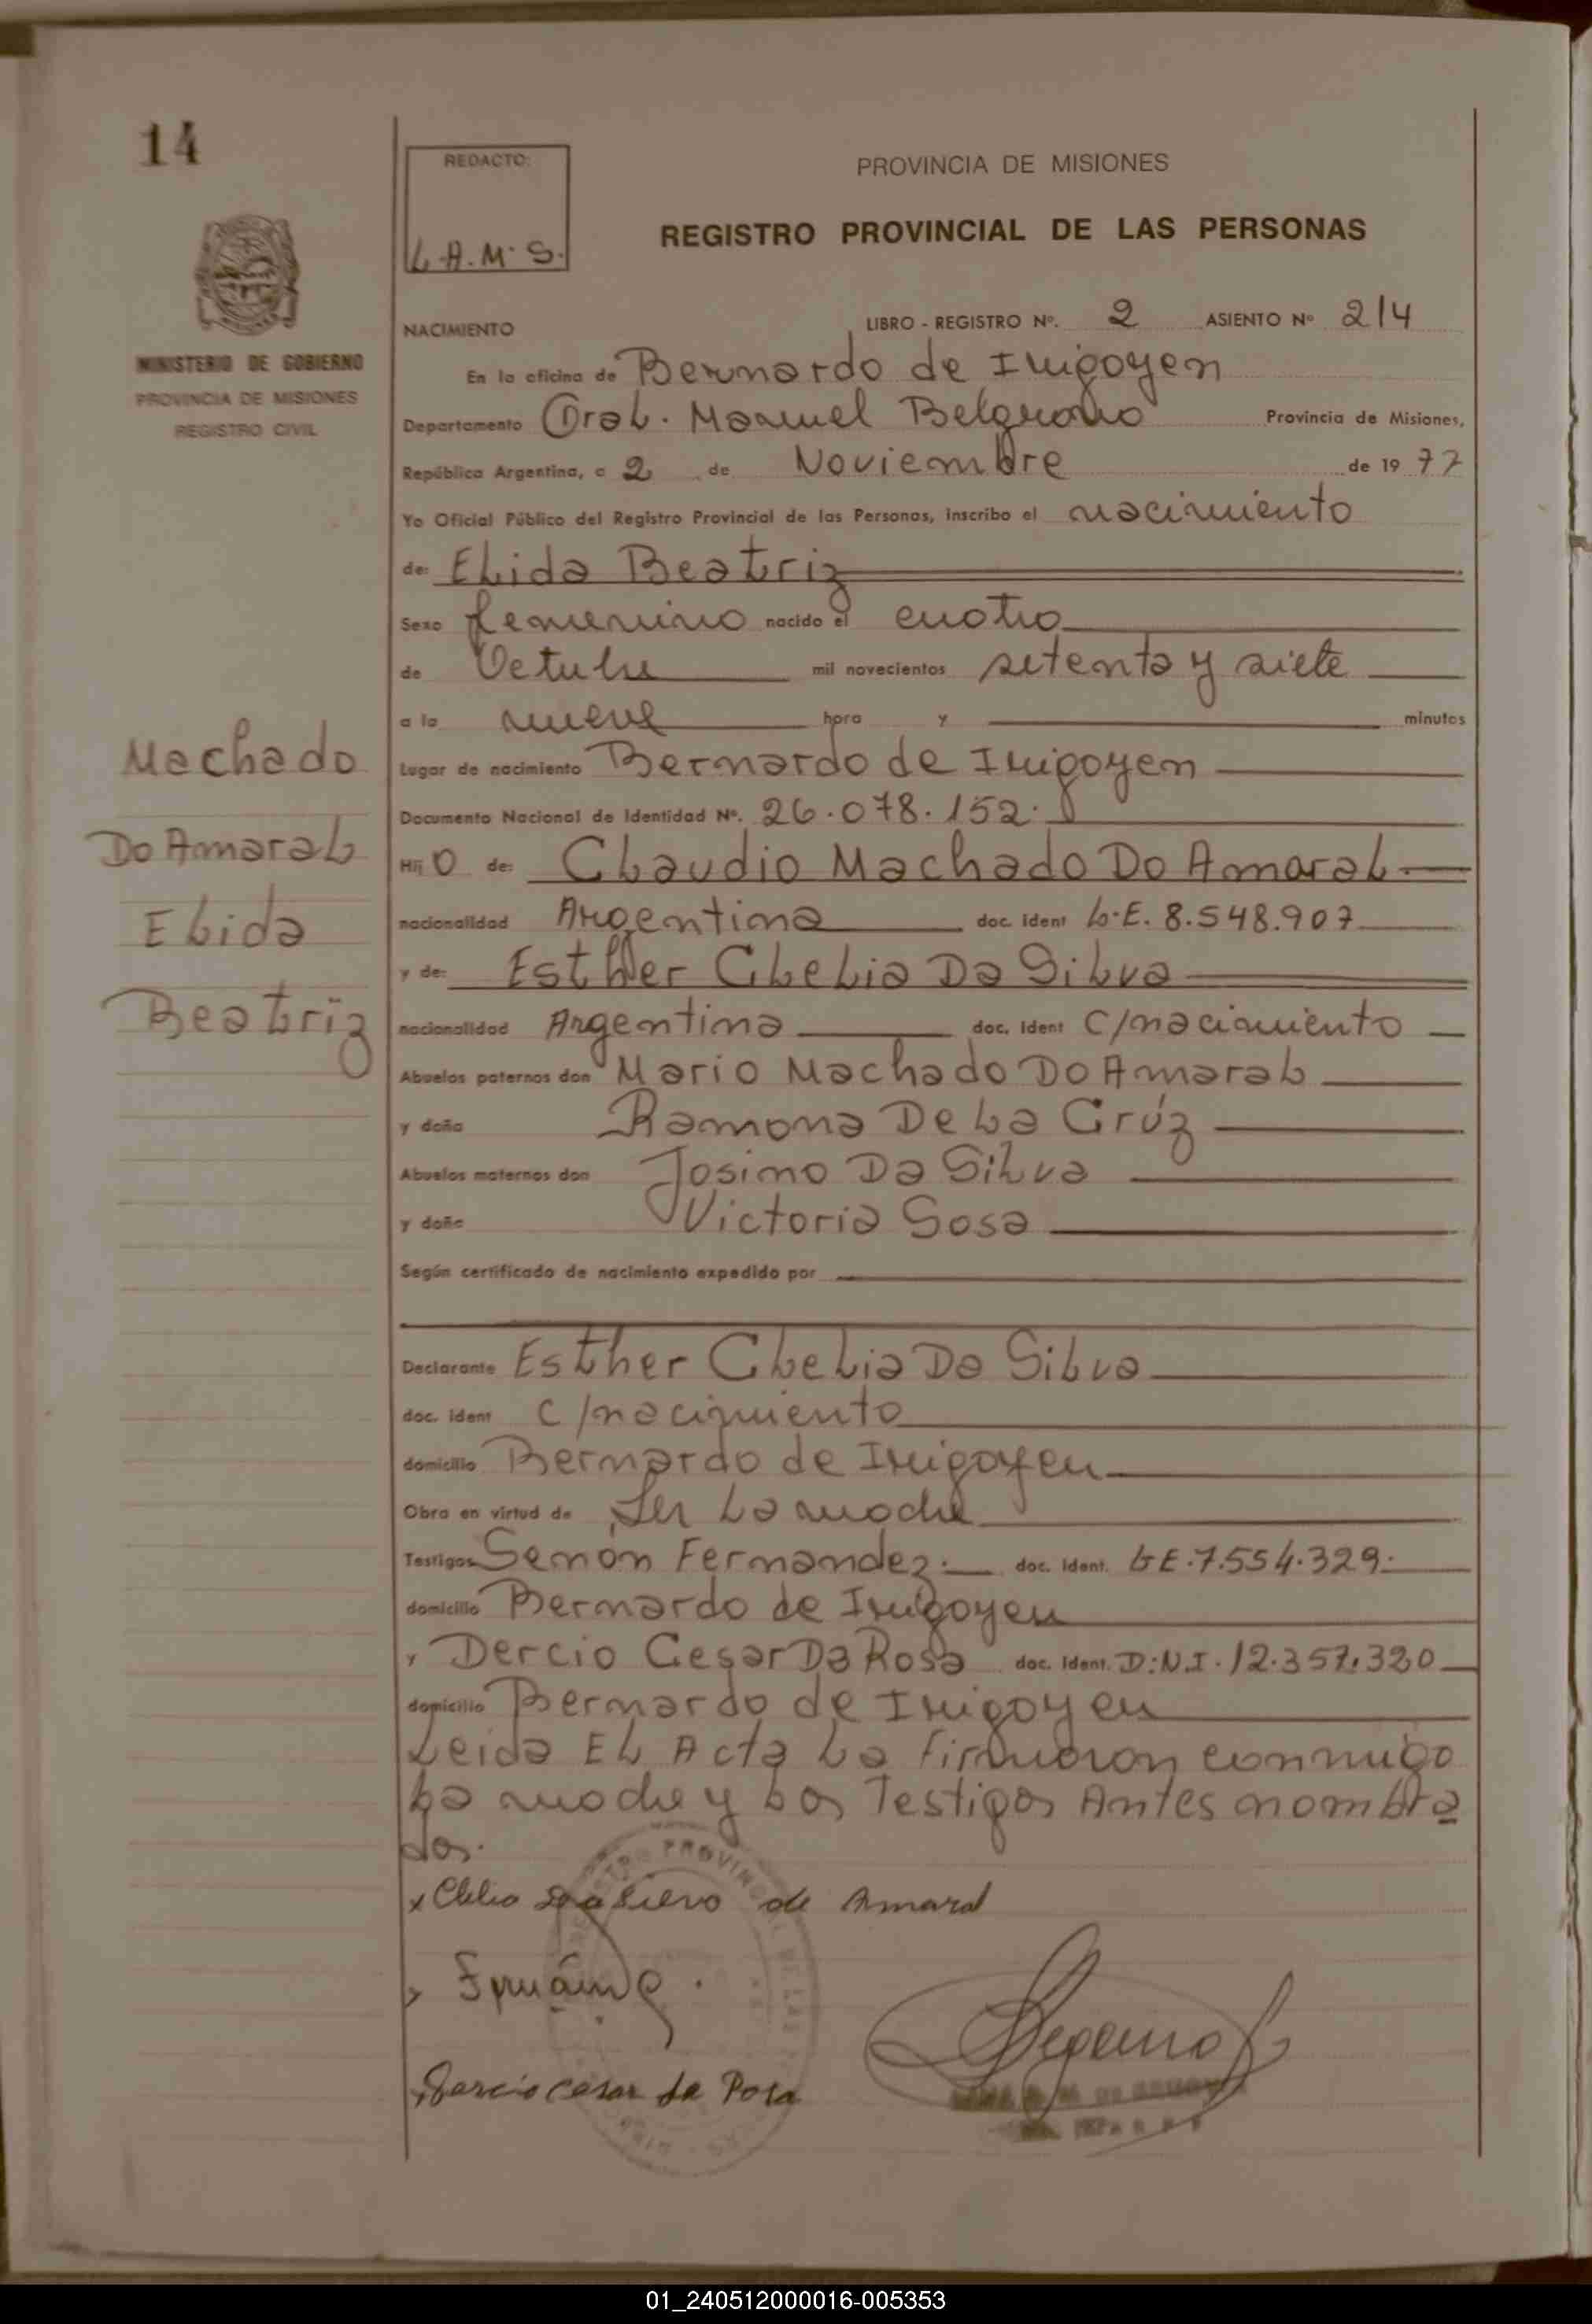 14
REDACTO:
L.A.M.S.
PROVINCIA DE MISIONES
REGISTRO PROVINCIAL DE LAS PERSONAS
MINISTERIO DE GOBIERNO
PROVINCIA DE MISIONES
REGISTRO CIVIL
NACIMIENTO
LIBRO - REGISTRO Nº. 2 ASIENTO Nº 214
En la oficina de Bernardo de Irigoyen
Departamento Gral. Manuel Belgrano Provincia de Misiones,
República Argentina, a 2 de Noviembre de 19 77
Yo Oficial Público del Registro Provincial de las Personas, inscribo el nacimiento
de: Elida Beatriz
Sexo femenino nacido el cuatro
de Octubre mil novecientos setenta y siete
a la nueve hora y minutos
Lugar de nacimiento Bernardo de Irigoyen
Documento Nacional de Identidad Nº. 26.078.152.
Hij O de: Claudio Machado Do Amaral
nacionalidad Argentina doc. ident L.E. 8.548.907
y de: Esther Clelia Da Silva
nacionalidad Argentina doc. ident C/nacimiento
Abuelos paternos don Mario Machado Do Amaral
y doña Ramona De La Crúz
Abuelos maternos don Josino Da Silva
y doña Victoria Sosa
Según certificado de nacimiento expedido por
Machado
Do Amaral
Elida
Beatriz
Declarante Esther Clelia Da Silva
doc. ident C/nacimiento
domicilio Bernardo de Irigoyen
Obra en virtud de Ser La madre
Testigos Senón Fernandez. doc. ident. LE.7.554.329.
domicilio Bernardo de Irigoyen
y Dercio Cesar Da Rosa doc. ident. D.N.I. 12.357.320
domicilio Bernardo de Irigoyen
Leida El Acta La firmaron conmigo
La madre y Los Testigos Antes nombra
dos.
x Clelia Da Silva de Amaral
Dercio Cesar da Rosa
REGISTRO PROVINCIAL DE LAS
01_240512000016-005353